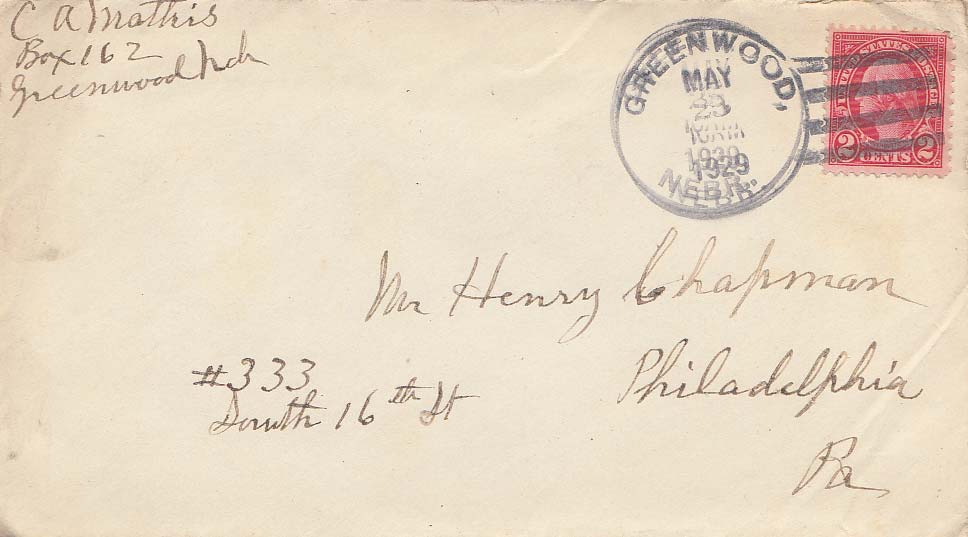 C A Mathis
Box 162
Greenwood Neb
GREENWOOD,
MAY
23
10AM
1929
NEBR.
UNITED STATES POSTAGE
2 CENTS 2
Mr Henry Chapman
#333
South 16th St
Philadelphia
Pa